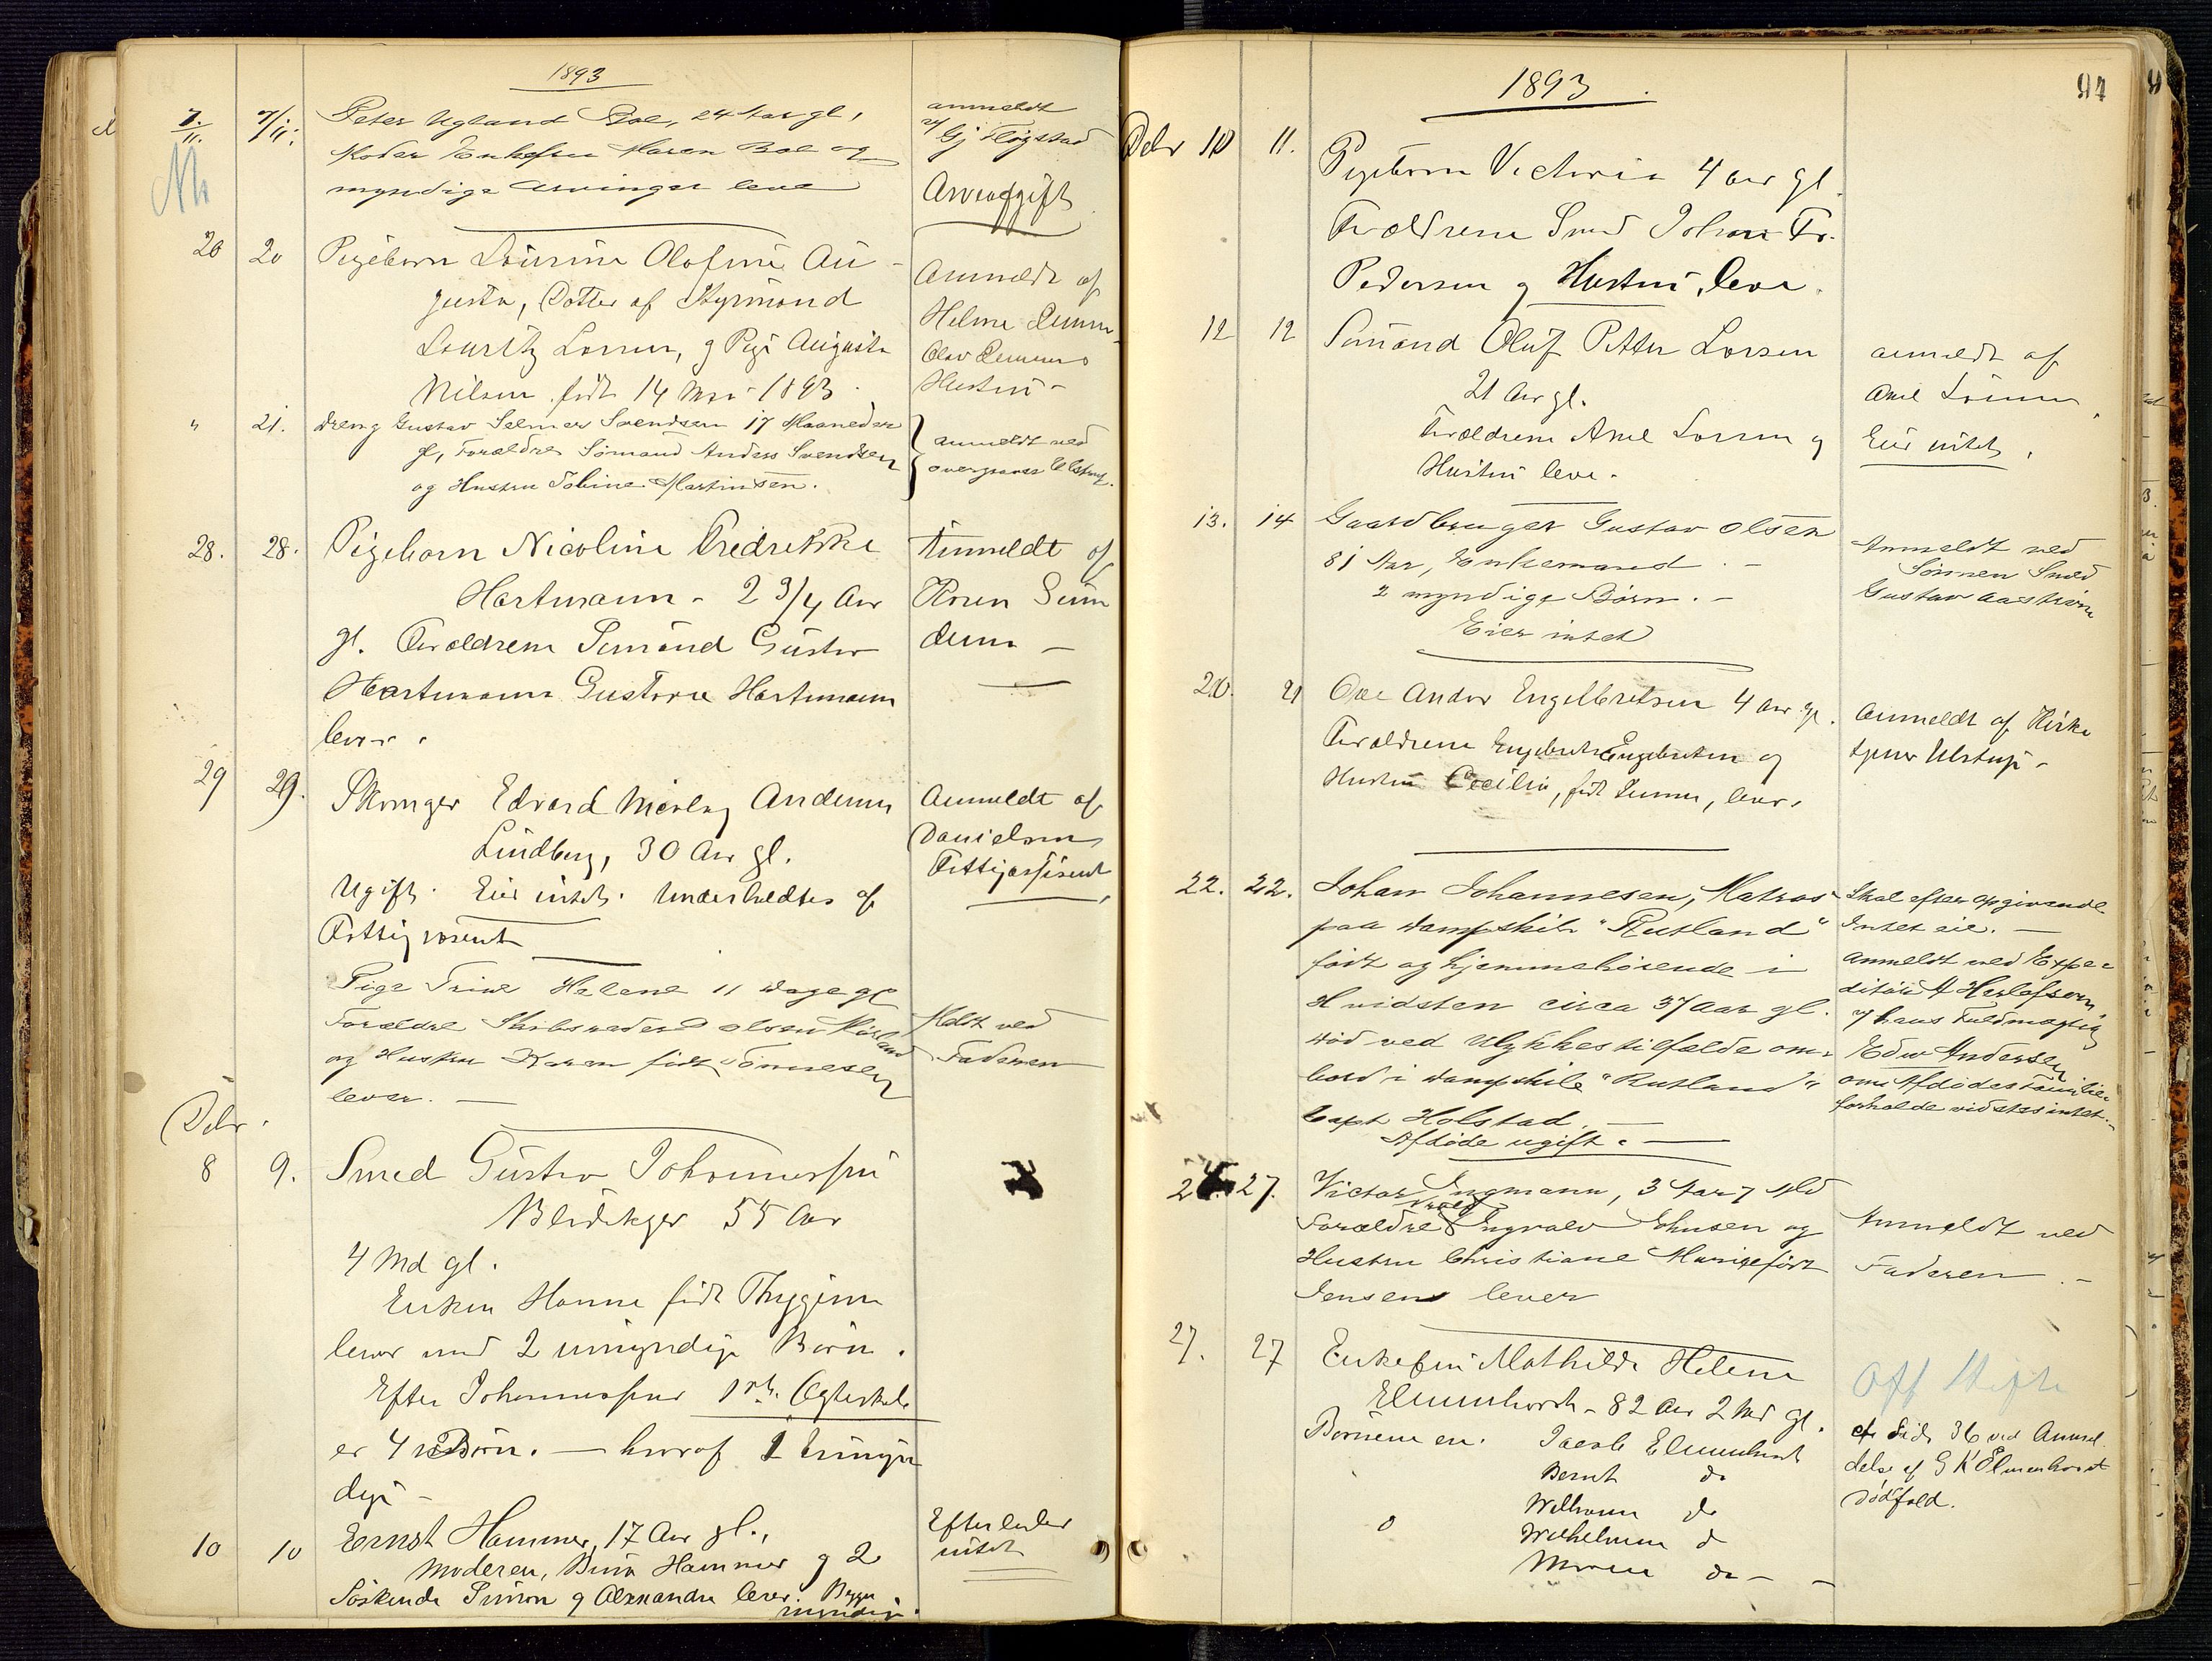 1893
7./11. 7/11. Peter Ugland Boe, 24 Aar gl,
Moder Enkefru Maren Boe og
myndige Arvinger leve
anmeldt
af Gj Fløgstad
Arveafgift
20 20 Pigebarn Laurine Olofine Au-
gusta, Datter af Styrmand
Lauritz Larsen, g Pige Augusta
Nilsen født 14 Mai 1893
Anmeldt af
Helene
Olav
Hustru
" 21. dreng Gustav Selmer Svendsen 17 Maaneder
gl, Forældre Sømand Anders Svendsen
og Hustru Tobine Martinsen.
anmeldt ved
overgraver Ulstrup.
28. 28. Pigebarn Nicoline Fredrikke
Hartmann - 2 3/4 Aar
gl. Forældrene Sømand Gustav
Hartmann Gustava Hartmann
lever.
Anmeldt af
29 29. Edvard Nicolay Andersen
Lindberg, 30 Aar gl.
Ugift. Eier intet. Underholdtes af
Fattigvæsent
Anmeldt af
Danielsen
Fattigvæsent
Pige Trine Helene 11 Dage gl
Forældre Skibsreder Olsen Mørland
og Hustru Karen født Tønnesen
lever.
Meldt ved
Faderen
Debr.
8 9. Smed Gustav Johannessen
Blødekjær 55 Aar
4 Md gl.
Enken Hanne født Thygesen
lever med 2 umyndige Børn.
Efter Johannessens 1ste Ægteskab
er 4 Børn. — hvoraf 1 umyn
dige -
10 10 Ernst Hammer, 17 Aar gl.,
Moderen, Hammer g 2
Søskende Simon g Alexandra lever. Begge
myndige.
Efterlader
intet
1893.
94
Debr 10 11. Pigebarn Victoria 4 Aar gl.
Forældrene Smed Johan Fr.
Pedersen g Hustru, leve.
12 12 Sømand Oluf Petter Larsen
21 Aar gl.
Forældrene Axel Larsen g
Hustru leve.
anmeldt af
Axel Larsen
Eier intet.
13. 14 Gaardbruger Gustav Olsen
81 Aar, Enkemand. -
2 myndige Børn. -
Eier intet
Anmeldt ved
Sønnen Smed
Gustav
20. 21 Ove Andor Engelbretsen 4 Aar gl.
Forældrene Engebret Engebretsen og
Hustru Cecilie, født , lever.
Anmeldt af Kirke
tjener Ulstrup -
22. 22. Johan Johannesen, Matros
paa Dampskib "Rutland"
født og hjemmehørende i
Hvidsten circa 37 Aar gl.
død ved Ulykkestilfælde om-
bord i Dampskib "Rutland"
Capt Holstad. —
Afdøde ugift. —
Skal efter Opgivende
Intet eie. —
anmeldt ved Expe-
ditør A Herlofson,
v/ hans Fuldmægtig
Edw Andersen
om Afdødes Familie-
forholde vidstes intet. -
27. Victor Ingmann, 3 Aar 7 Md
Forældre Ingvald Johnsen og
Hustru Christiane Marie født
Jensen lever
Anmeldt ved
Faderen. -
27. 27 Enkefru Mathilde Helene
Elmenhorst - 82 Aar 2 Md gl.
Børnene er. Jacob Elmenhorst
Bernt do
do
Wilhelmine d
Maren do —
Off Skifte
cfr Side 36 ved Anmel
delse af G K Elmenhorst
Dødfald.